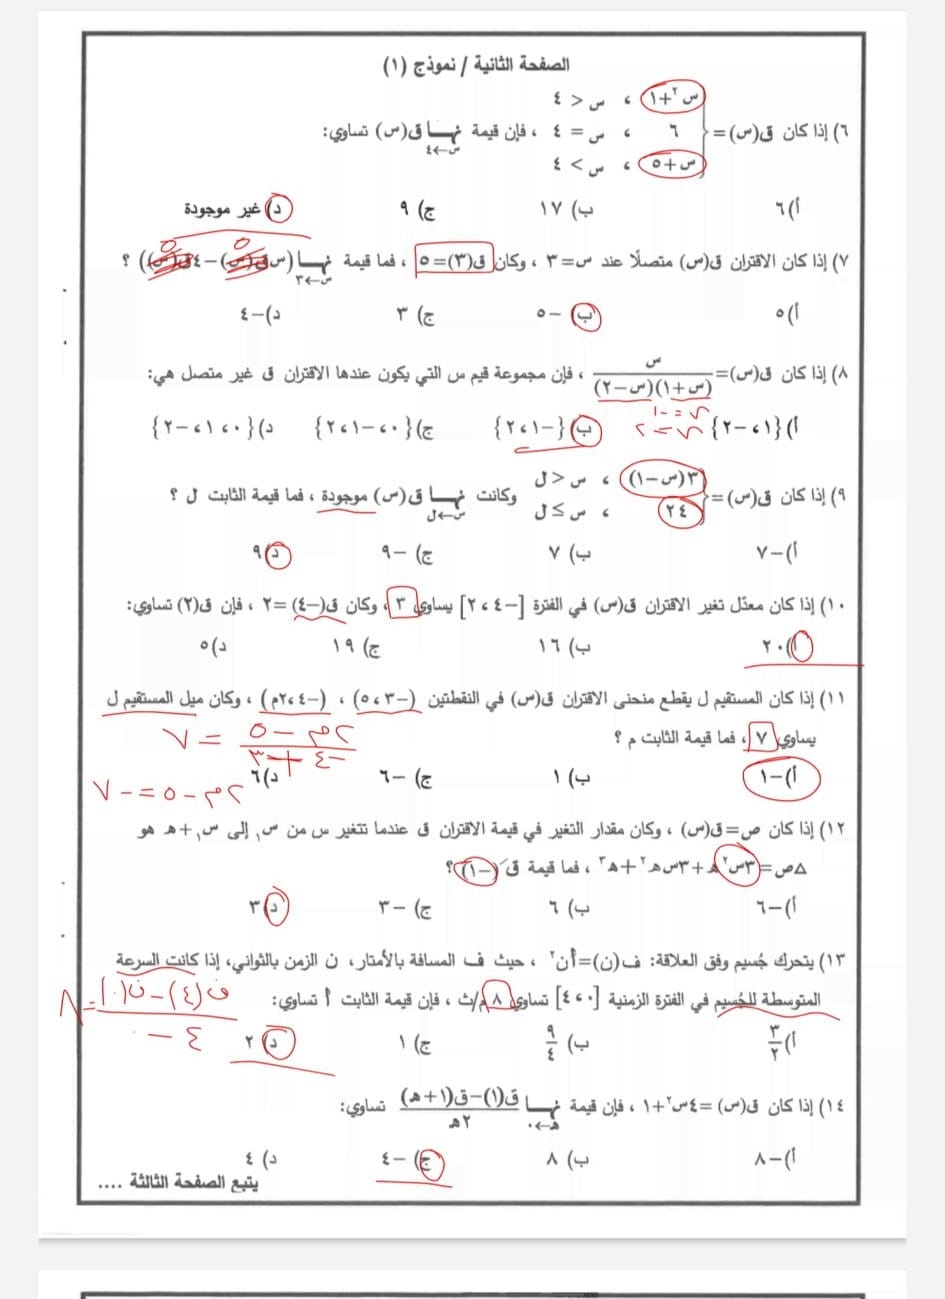 الصفحة الثانية / نموذج (١)
٦) إذا كان ق(س) = { س٢+١ ، س > ٤
٦ ، س = ٤ ، فإن قيمة نهــا ق(س) تساوي:
س←٤
س+٥ ، س < ٤
أ) ٦ ب) ١٧ ج) ٩ د) غير موجودة
٧) إذا كان الاقتران ق(س) متصلًا عند س= ٣ ، وكان ق(٣)= ٥ ، فما قيمة نهــا (س ق(س) –٤ ق(س)) ؟
س←٣
٥ ٥
أ) ٥ ب) –٥ ج) ٣ د) –٤
٨) إذا كان ق(س)= س / (س+١)(س–٢) ، فإن مجموعة قيم س التي يكون عندها الاقتران ق غير متصل هي:
س = –١
س = ٢
أ) {١ ، –٢} ب) {–١ ، ٢} ج) {٠ ، –١ ، ٢} د) {٠ ، ١ ، –٢}
٩) إذا كان ق(س) = { ٣(س–١) ، س > ل
٢٤ ، س ≤ ل وكانت نهــا ق(س) موجودة ، فما قيمة الثابت ل ؟
س←ل
أ) –٧ ب) ٧ ج) –٩ د) ٩
١٠) إذا كان معدّل تغير الاقتران ق(س) في الفترة [–٤ ، ٢] يساوي ٣ ، وكان ق(–٤) = ٢ ، فإن ق(٢) تساوي:
أ) ٢٠ ب) ١٦ ج) ١٩ د) ٥
١١) إذا كان المستقيم ل يقطع منحنى الاقتران ق(س) في النقطتين (–٣ ، ٥) ، (–٤ ، ٢م) ، وكان ميل المستقيم ل
يساوي ٧ ، فما قيمة الثابت م ؟
٢م – ٥ / –٤ + ٣ = ٧
أ) –١ ب) ١ ج) –٦ د) ٦
٢م – ٥ = –٧
١٢) إذا كان ص=ق(س) ، وكان مقدار التغير في قيمة الاقتران ق عندما تتغير س من س١ إلى س١+هـ هو
∆ص= ٣س٢هـ+٣س هـ٢+هـ٣ ، فما قيمة قَ(–١)؟
أ) –٦ ب) ٦ ج) –٣ د) ٣
١٣) يتحرك جُسيم وفق العلاقة: ف(ن)=أن٢ ، حيث ف المسافة بالأمتار، ن الزمن بالثواني، إذا كانت السرعة
المتوسطة للجُسيم في الفترة الزمنية [٠ ، ٤] تساوي ٨ م/ث ، فإن قيمة الثابت أ تساوي:
ف(٤) – ف(٠) / ٤ – ٠ = ٨
أ) ٣/٢ ب) ٩/٤ ج) ١ د) ٢
١٤) إذا كان ق(س) =٤س٢+١ ، فإن قيمة نهــا ق(١)–ق(١+هـ) / ٢هـ تساوي:
هـ←٠
أ) –٨ ب) ٨ ج) –٤ د) ٤
يتبع الصفحة الثالثة ....